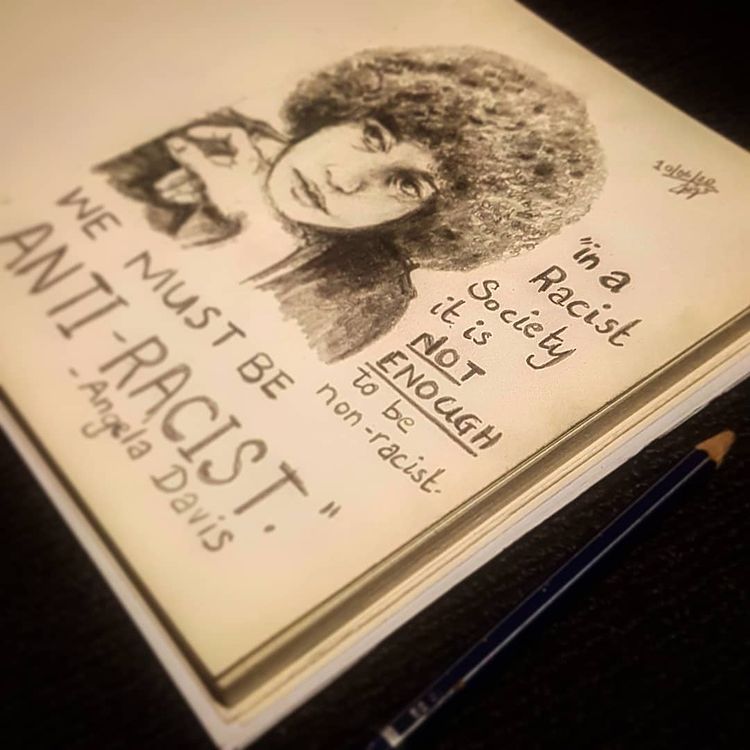 "in a
Racist
Society
it is
NOT
ENOUGH
to be
non-racist.
WE MUST BE
ANTI-RACIST."
- Angela Davis